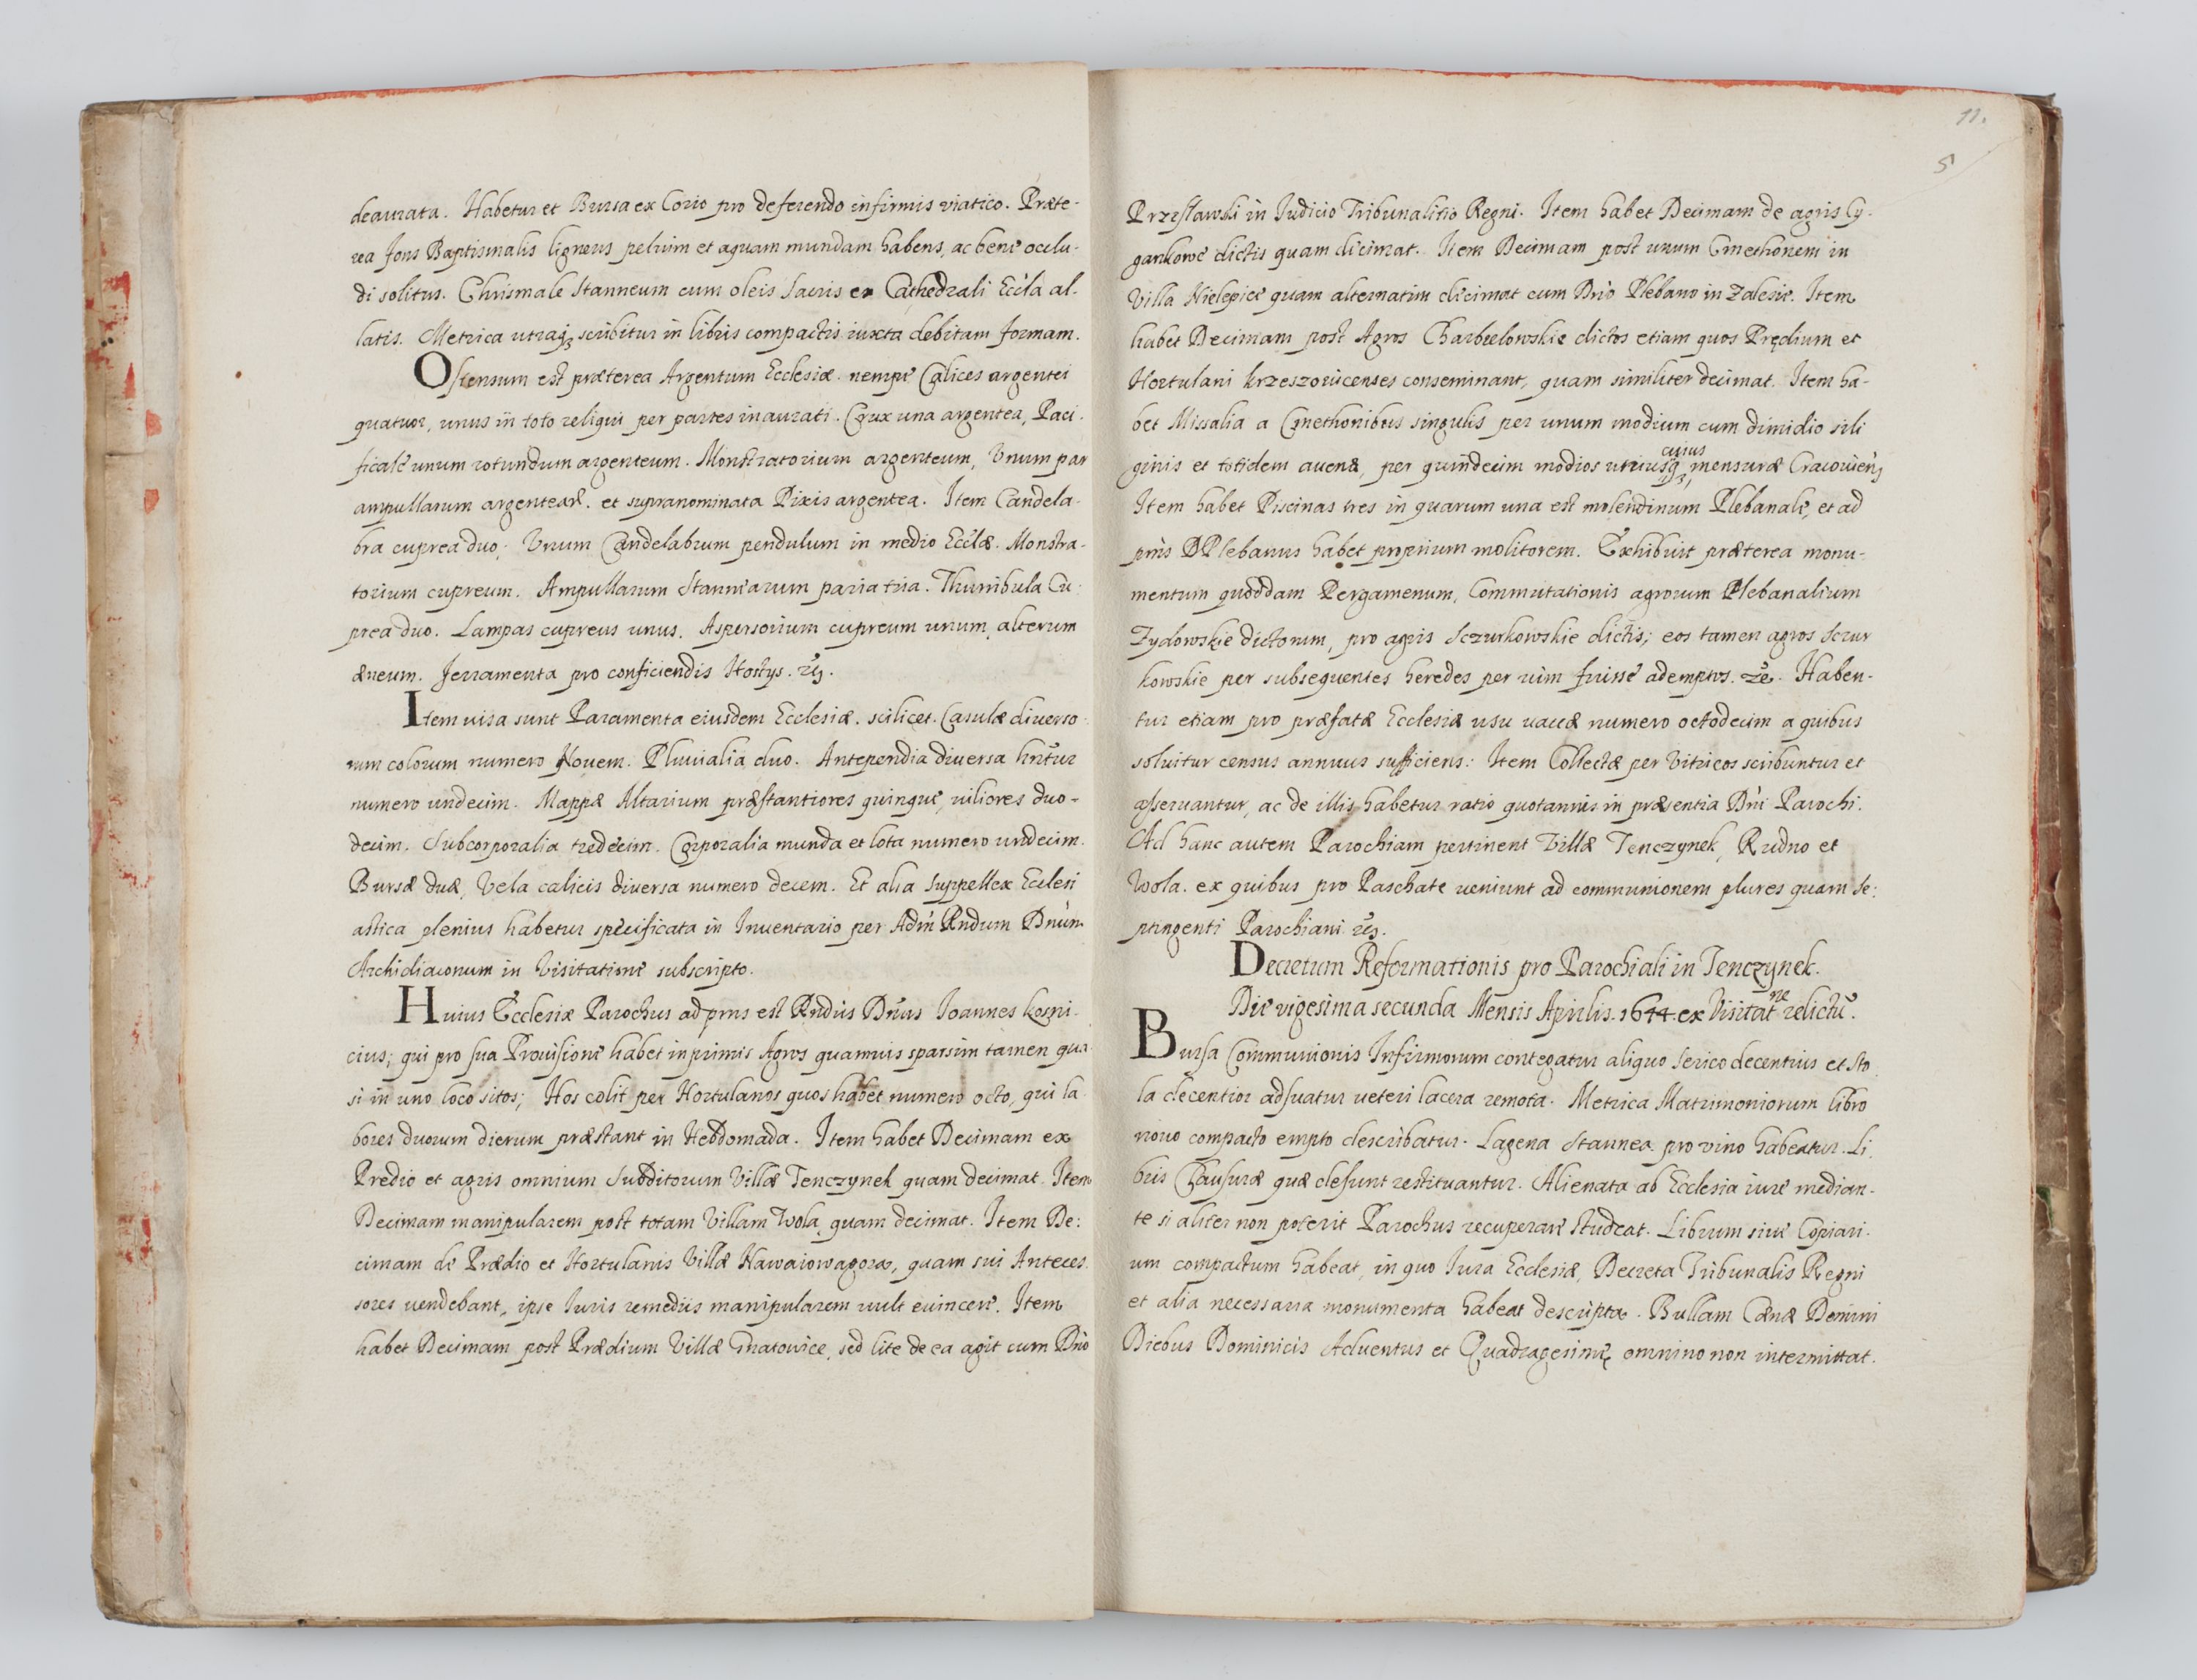 deaurata. Habetur et Bursa ex Corio pro deferendo infirmis viatico. Præte-
rea fons Baptismalis ligneus pelvim et aquam mundam habens, ac bene occlu-
di solitus. Chrismale stanneum cum oleis sacris ex Cathedrali Eccla al-
latis. Metrica utraq3 scribitur in libris compactis iuxta debitam formam.
Ostensum est præterea Argentum Ecclesiæ. nempe Calices argentei
quatuor, unus in toto reliqui per partes inaurati. Crux una argentea, Paci-
ficale unum rotundum argenteum. Monstratorium argenteum, Unum par
ampullarum argenteaR. et supranominata Pixis argentea. Item Candela-
bra cuprea duo. Unum Candelabrum pendulum in medio Ecclæ. Monstra-
torium cupreum. Ampullarum stannearum paria tria. Thuribula Cu-
prea duo. Lampas cupreus unus. Aspersorium cupreum unum, alterum
æneum. ferramenta pro conficiendis Hostys.
Item visa sunt Paramenta eiusdem Ecclesiæ. scilicet. Casulæ diverso-
rum colorum numero Novem. Pluvialia duo. Antependia diversa hntur
numero undecim. Mappæ Altarium præstantiores quinque, viliores duo-
decim. Subcorporalia tredecim. Corporalia munda et lota numero undecim.
Bursæ duæ, Vela calicis diversa numero decem. Et alia suppellex Ecclesi
astica plenius habetur specificata in Inventario per Adm Rndum Dnum
Archidiaconum in Visitatione subscripto.
Huius Ecclesiæ Parochus ad pns est Rndus Dnus Ioannes Kosni-
cius; qui pro sua Provisione habet inprimis Agros quamvis sparsim tamen qua
si in uno loco sitos; Hos colit per Hortulanos quos habet numero octo, qui la
bores duorum dierum præstant in Hebdomada. Item habet Decimam ex
Predio et agris omnium subditorum Villæ Tenczynek quam decimat. Item
Decimam manipularem post totam Villam Wola, quam decimat. Item De:
cimam de Prædio et Hortulanis Villæ Nawaiowagora, quam sui Anteces
sores vendebant, ipse Iuris remediis manipularem vult evincere. Item
habet Decimam post Prædium Villæ Gnatowice, sed lite de ea agit cum Dno
11.
5
Przesławski in Iudicio Tribunalitio Regni. Item habet Decimam de agris Cy-
gankowe dictis quam decimat. Item Decimam post unum Cmethonem in
Villa Nielepice quam alternatim decimat cum Dno Plebano in Zalesie. Item
habet Decimam post Agros Charbielowskie dictos etiam quos Prędium et
Hortulani krzeszovicenses conseminant, quam similiter decimat. Item ha-
bet Missalia a Cmethonibus singulis per unum modium cum dimidio sili
cuius
ginis et totidem avenæ, per quindecim modios utriusq3, mensuræ Cracovien
Item habet Piscinas tres in quarum una est molendinum Plebanale, et ad
pns DPlebanus habet proprium molitorem. Exhibuit præterea monu-
mentum quoddam Pergamenum, Commutationis agrorum Plebanalium
Zydowskie dictorum, pro agris Sczurkowskie dictis; eos tamen agros Sczur
kowskie per subsequentes heredes per vim fuisse ademptos. Haben-
tur etiam pro præfatæ Ecclesiæ usu vaccæ numero octodecim a quibus
solvitur census annuus sufficiens: Item Collectæ per Vitricos scribuntur et
asservantur, ac de illis habetur ratio quotannis in præsentia Dni Parochi.
Ad hanc autem Parochiam pertinent Villæ Tenczynek, Rudno et
Wola. ex quibus pro Paschate veniunt ad communionem plures quam se:
ptingenti Parochiani
Decretum Reformationis pro Parochiali in Tenczynek.
Die vigesima secunda Mensis Aprilis. 1644. ex Visitatne relictu.
Bursa Communionis Infirmorum contegatur aliquo serico decentius et sto
la decentior adsuatur veteri lacera remota. Metrica Matrimoniorum libro
novo compacto empto describatur. Lagena stannea pro vino habeatur. Li
bris Clausuræ quæ desunt restituantur. Alienata ab Ecclesia iure median-
te si aliter non poterit Parochus recuperare studeat. Librum sive Copiari-
um compactum habeat, in quo Iura Ecclesiæ, Decreta Tribunalis Regni
et alia necessaria monumenta habeat descripta. Bullam Cænæ Domini
Diebus Dominicis Adventus et Quadragesimę omnino non intermittat.